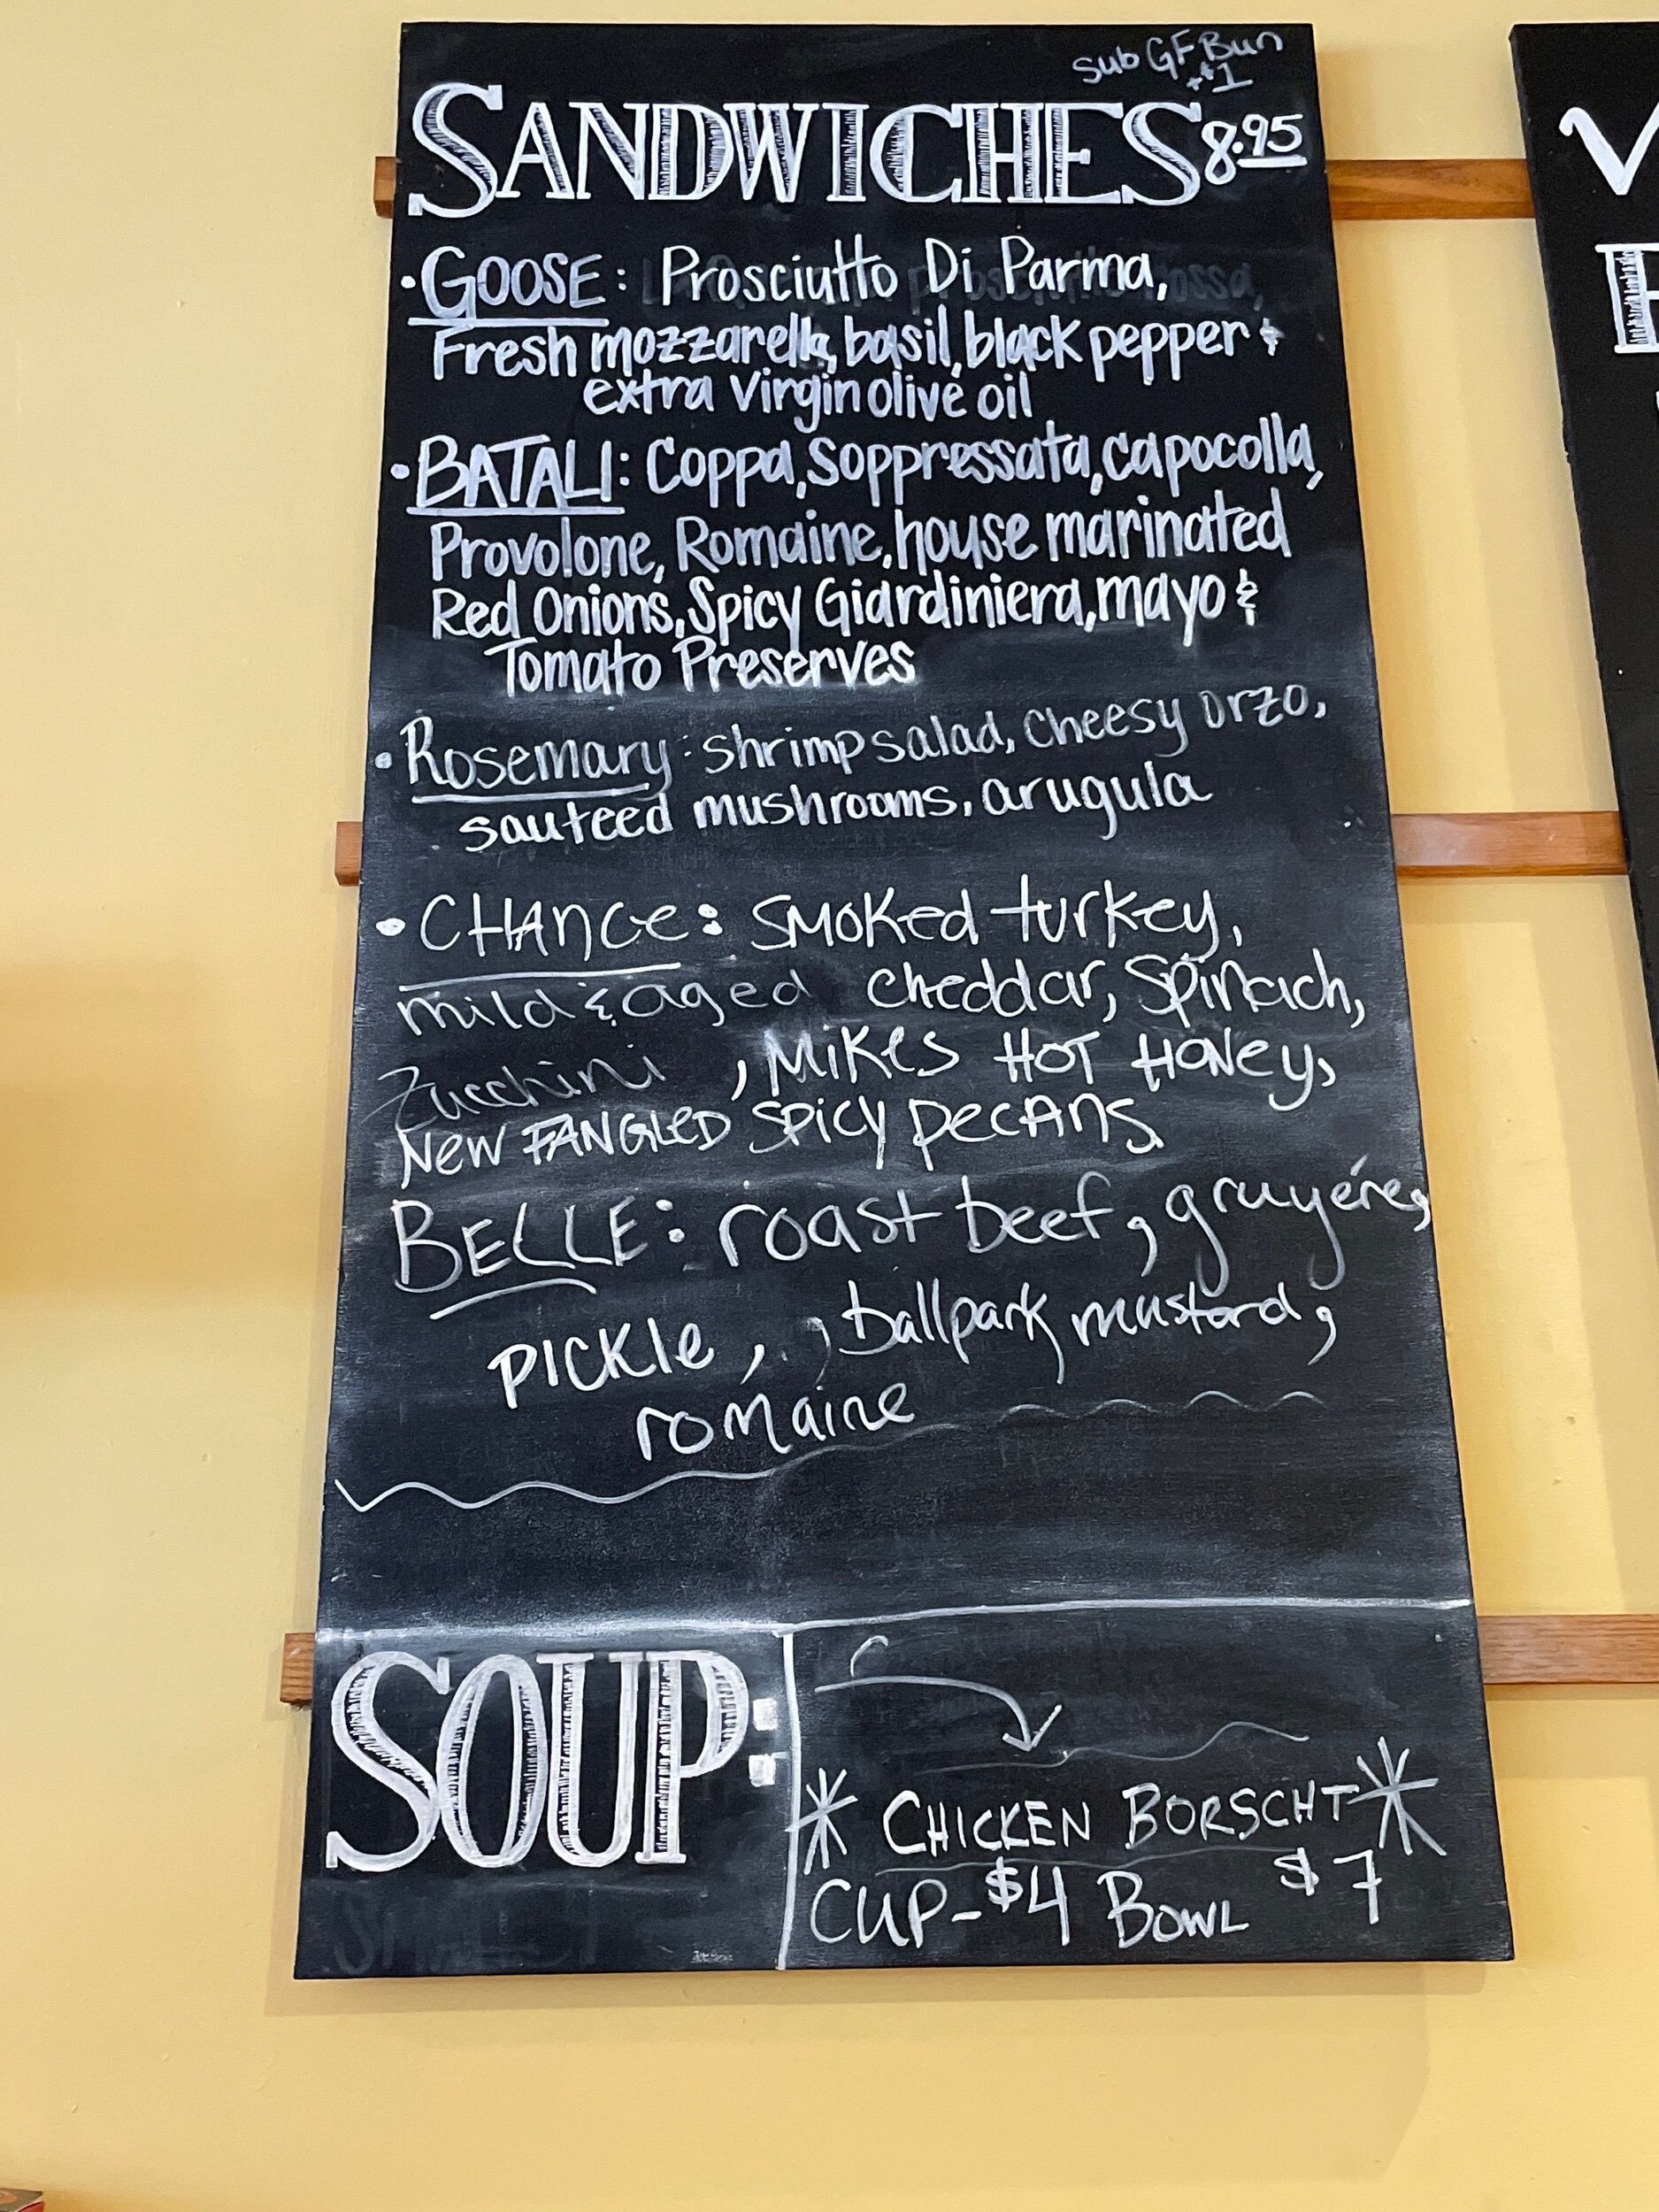 Sub GF Bun
+$1
SANDWICHES 8.95
• GOOSE: Prosciutto Di Parma,
Fresh mozzarella, basil, black pepper &
extra virgin olive oil
• BATALI: Coppa, Soppressata, capocolla,
Provolone, Romaine, house marinated
Red Onions, Spicy Giardiniera, mayo &
Tomato Preserves
• Rosemary: shrimp salad, cheesy orzo,
sauteed mushrooms, arugula
• CHANCE: SMOKED turkey,
mild & aged cheddar, Spinach,
Zucchini, MIKES HOT HONEY,
NEW FANGLED SPICY PECANS.
BELLE: roast beef, gruyére,
PICKLE, , ballpark mustard,
romaine
SOUP:
* CHICKEN BORSCHT *
CUP-$4 BOWL $7